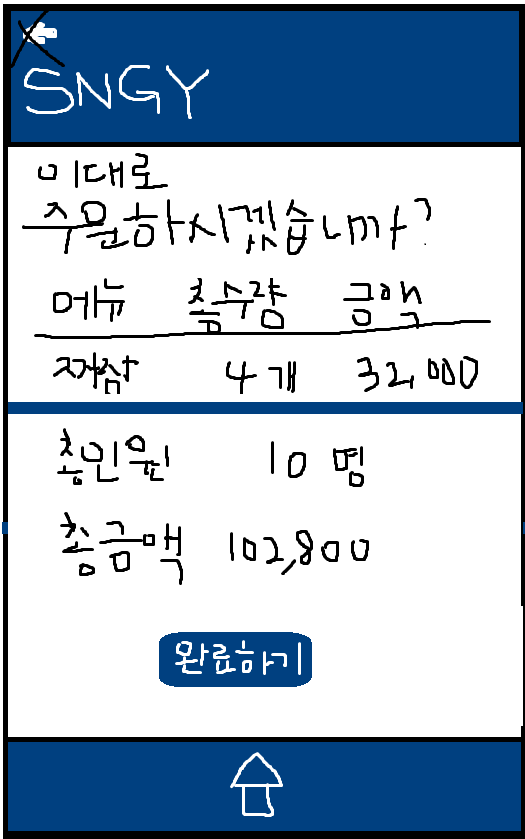 SNGY
이대로
주문하시겠습니까?
메뉴 총수량 금액
4개 32,000
총인원 10명
총금액 102,800
완료하기